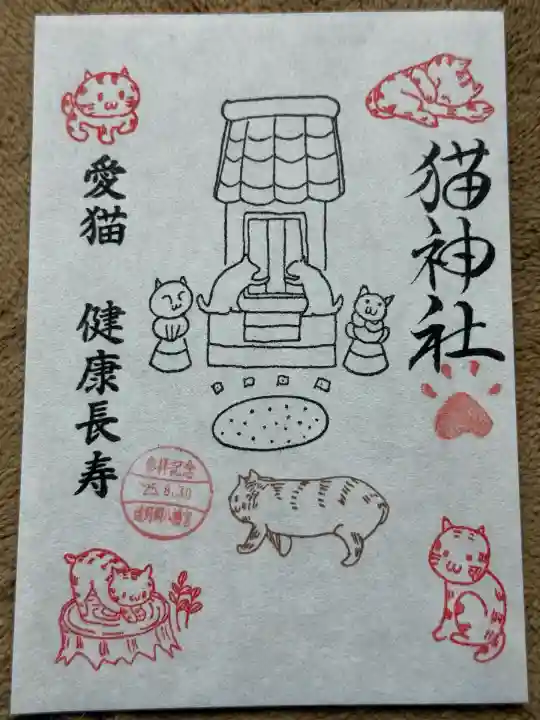 猫神社
愛猫 健康長寿
参拝記念
'25.8.30